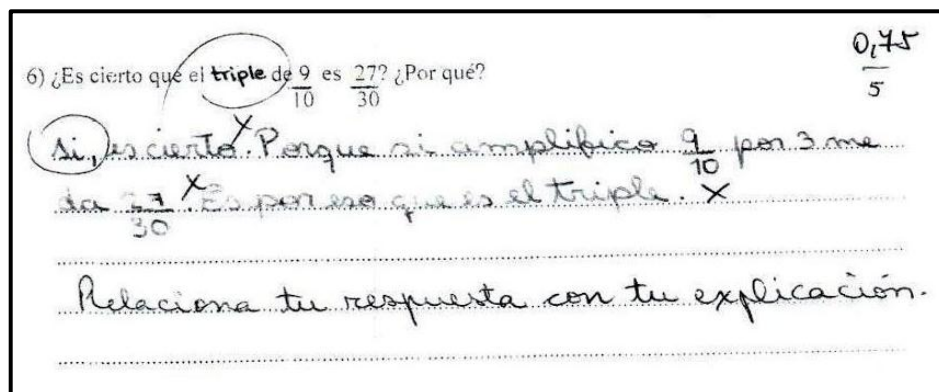 0,75
5
6) ¿Es cierto que el triple de 9/10 es 27/30? ¿Por qué?
Si, es cierto. X Porque si amplifico 9/10 por 3 me
da 27/30. X Es por eso que es el triple. X
Relaciona tu respuesta con tu explicación.